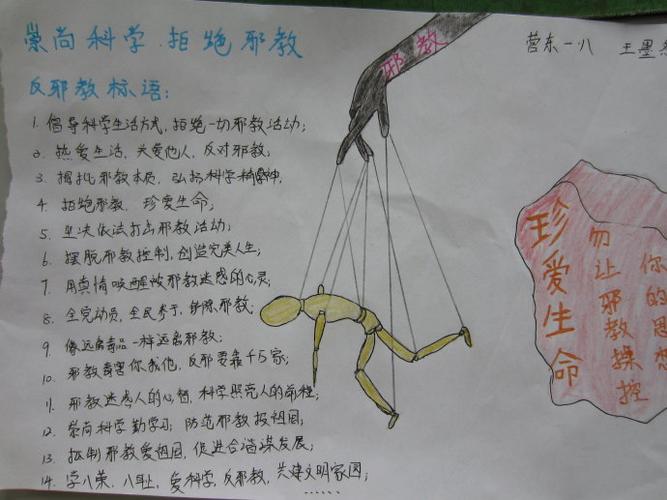 崇尚科学 拒绝邪教
营东一八 王墨
反邪教标语:
邪教
1. 倡导科学生活方式,拒绝一切邪教活动;
2. 热爱生活,关爱他人,反对邪教;
3. 揭批邪教本质,弘扬科学精神;
4. 拒绝邪教 珍爱生命;
5. 坚决依法打击邪教活动;
6. 摆脱邪教控制,创造完美人生;
7. 用真情唤醒被邪教迷惑的心灵;
8. 全党动员,全民参于,铲除邪教;
9. 像远离毒品一样远离邪教;
10. 邪教毒害你我他,反邪要靠千万家;
11. 邪教迷惑人的心智,科学照亮人的前程;
12. 崇尚科学勤学习,防范邪教报祖国;
13. 抵制邪教爱祖国,促进合谐谋发展;
14. 学八荣,八耻,爱科学,反邪教,共建文明家园;
......
珍爱生命
勿让邪教操控
你的思想